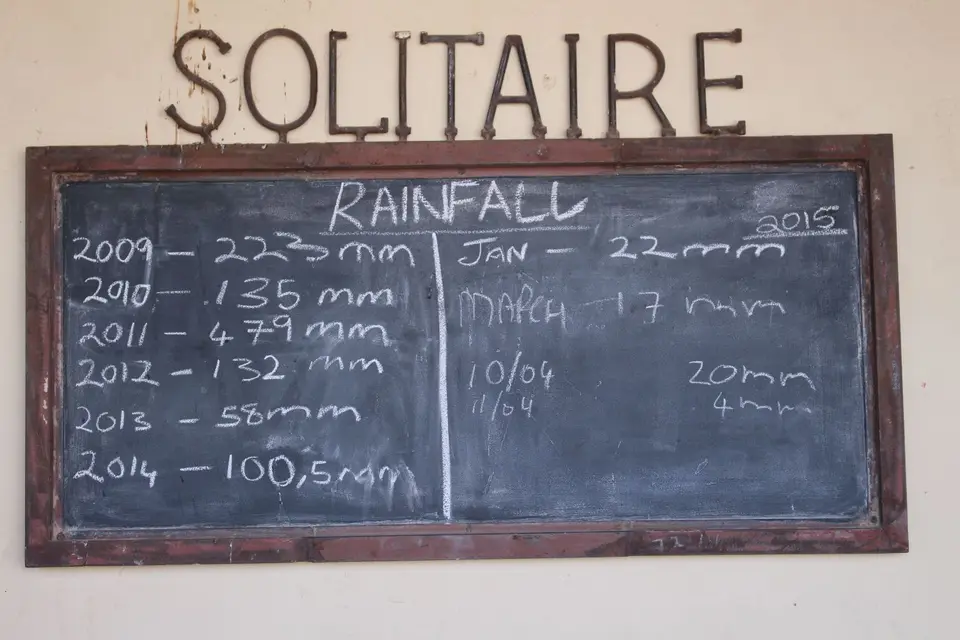 SOLITAIRE
RAINFALL
2009 - 223mm
2010 - 135 mm
2011 - 479mm
2012 - 132 mm
2013 - 58mm
2014 - 100,5mm
2015
JAN - 22mm
MARCH - 17 mm
10/04 20mm
11/04 4mm